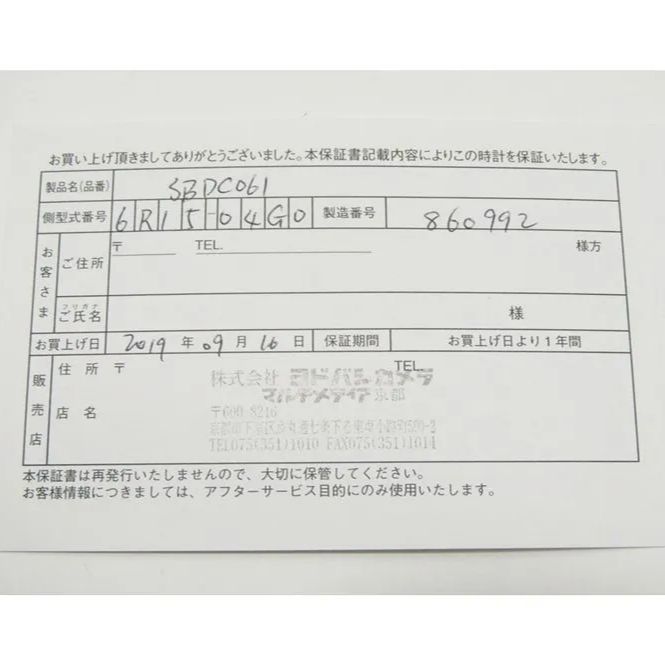 お買い上げ頂きましてありがとうございました。本保証書記載内容によりこの時計を保証いたします。
製品名(品番) SBDC061
側型式番号 6R15-04G0 製造番号 860992
お客さま
ご住所 〒 TEL. 様方
フリガナ
ご氏名 様
お買上げ日 2019年09月16日 保証期間 お買上げ日より1年間
販売店
住所 〒 TEL.
株式会社 ヨドバシカメラ
マルチメディア京都
店名
〒600-8216
京都市下京区烏丸通七条下る東塩小路町590-2
TEL075(351)1010 FAX075(351)1014
本保証書は再発行いたしませんので、大切に保管してください。
お客様情報につきましては、アフターサービス目的にのみ使用いたします。